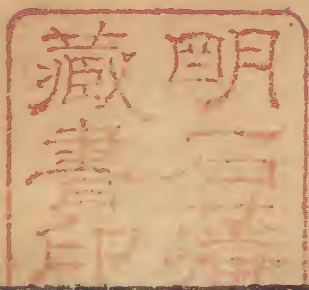 明石
藏書印